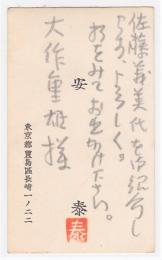 佐藤義美氏を御紹介し
ます、よろしく。
折をみてお出かけ下さい。
大作重雄様
安 泰
泰
東京都豊島区長崎一ノ二二